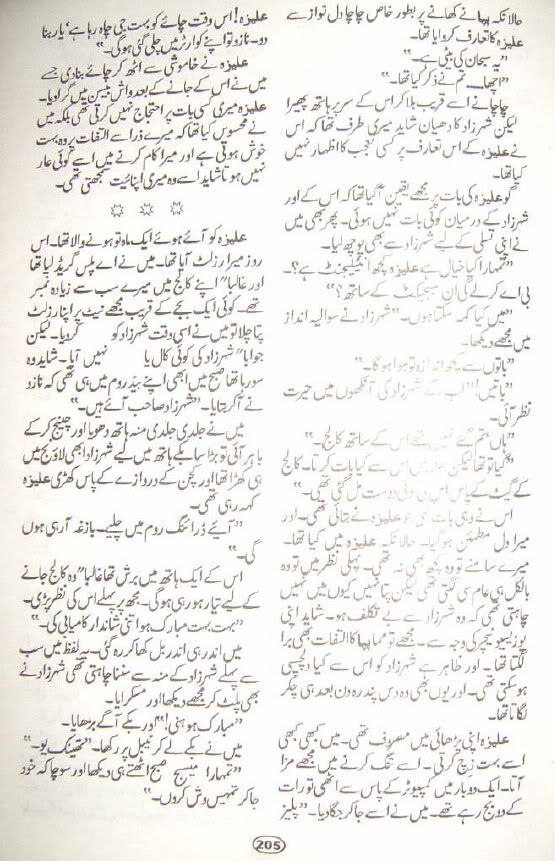 حالانکہ پپا نے کھانے پر بطور خاص چاچا دل نواز سے
علیزہ کا تعارف کروایا تھا۔
”یہ سبحان کی بیٹی ہے۔“
”اچھا.... تم نے ذکر کیا تھا۔“
چاچا نے اسے قریب بلا کر اس کے سر پر ہاتھ پھیرا
لیکن شہرزاد کا دھیان شاید میری طرف تھا کہ اس
نے علیزہ کے اس تعارف پر کسی تعجب کا اظہار نہیں
کیا تھا۔
گو علیزہ کی بات پر مجھے یقین آگیا تھا کہ اس کے اور
شہرزاد کے درمیان کوئی بات نہیں ہوئی۔ پھر بھی میں
نے اپنی تسلی کے لیے شہرزاد سے بھی پوچھ لیا۔
”تمہارا کیا خیال ہے علیزہ کچھ انٹیلیجنٹ ہے؟۔
بی اے کرلے گی ان سبجیکٹ کے ساتھ؟“
”میں کیا کہہ سکتا ہوں۔“ شہرزاد نے سوالیہ انداز
میں مجھے دیکھا۔
”باتوں سے کچھ اندازہ تو ہوا ہو گا۔“
”باتیں!“ اب کے شہرزاد کی آنکھوں میں حیرت
نظر آئی۔
”ہاں تم گئے نہیں تھے اس کے ساتھ کالج۔“
”گیا تو تھا لیکن میں اس سے کیا بات کرتا۔ کالج
کے گیٹ کے پاس اس کی کوئی دوست مل گئی تھی۔“
اس نے وہی بات کہی جو علیزہ نے بتائی تھی۔ اور
میرا دل مطمئن ہو گیا۔ حالانکہ علیزہ میں کیا تھا۔
میرے سامنے تو وہ کچھ بھی نہ تھی۔ پہلی نظر میں تو وہ
بالکل ہی عام سی لگتی تھی لیکن پتا نہیں کیوں میں نہیں
چاہتی تھی کہ وہ شہرزاد سے بے تکلف ہو۔ شاید اپنی
پوزیسیو نیچر کی وجہ سے۔ مجھے تو مما پپا کا التفات بھی برا
لگتا تھا۔ اور ظاہر ہے شہرزاد کو اس سے کیا دلچسپی
ہو سکتی تھی۔ اور یوں بھی وہ دس پندرہ دن بعد ہی چکر
لگاتا تھا۔
علیزہ اپنی پڑھائی میں مصروف تھی۔ میں کبھی کبھی
اسے بہت زچ کرتی۔ اسے تنگ کرنے میں مجھے مزا
آتا۔ ایک دو بار میں کمپیوٹر کے پاس سے اٹھی تو رات
کے دو بج رہے تھے۔ میں نے اسے جا کر جگا دیا۔ ”پلیز
علیزہ! اس وقت چائے کو بہت جی چاہ رہا ہے یار بنا
دو۔ نازو تو اپنے کوارٹر میں چلی گئی ہوگی۔“
علیزہ نے خاموشی سے اٹھ کر چائے بنادی جسے
میں نے اس کے جانے کے بعد واش بیسن میں گرا دیا۔
علیزہ میری کسی بات پر احتجاج نہیں کرتی تھی بلکہ میں
نے محسوس کیا تھا کہ میرے ذرا سے التفات پر وہ بہت
خوش ہوتی ہے اور میرا کام کرنے میں اسے کوئی عار
نہیں ہوتا شاید اسے وہ میری اپنائیت سمجھتی تھی۔
علیزہ کو آئے ہوئے ایک ماہ تو ہونے والا تھا۔ اس
روز میرا رزلٹ آیا تھا۔ میں نے اے پلس گریڈ لیا تھا
اور غالباً اپنے کالج میں میرے سب سے زیادہ نمبر
تھے۔ کوئی ایک بجے کے قریب مجھے نیٹ پر اپنا رزلٹ
پتا چلا تو میں نے اسی وقت شہرزاد کو کردیا۔ لیکن
جواباً شہرزاد کی کوئی کال یا نہیں آیا۔ شاید وہ
سو رہا تھا صبح میں ابھی اپنے بیڈ روم میں ہی تھی کہ نازو
نے آکر بتایا۔ ”شہرزاد صاحب آئے ہیں۔“
میں نے جلدی جلدی منہ ہاتھ دھویا اور چینج کرکے
باہر آئی تو بڑا سا بکے ہاتھ میں لیے شہرزاد ابھی لاؤنج میں
ہی کھڑا تھا اور کچن کے دروازے کے پاس کھڑی علیزہ
کہہ رہی تھی۔
”آئیے ڈرائنگ روم میں چلیے۔ بازغہ آرہی ہوں
گی۔“
اس کے ایک ہاتھ میں برش تھا غالباً وہ کالج جانے
کے لیے تیار ہو رہی ہوگی۔ مجھ پر پہلے اس کی نظر پڑی۔
”بہت بہت مبارک ہو اتنی شاندار کامیابی کی۔“
میں اندر ہی اندر بل کھا کر رہ گئی۔ یہ لفظ میں سب
سے پہلے شہرزاد کے منہ سے سننا چاہتی تھی شہرزاد نے
بھی پلٹ کر مجھے دیکھا اور مسکرایا۔
”مبارک ہو ہنی!“ اور بکے آگے بڑھایا۔
میں نے بکے لے کر ٹیبل پر رکھا۔ ”تھینک یو۔“
”تمہارا میسج صبح اٹھتے ہی دیکھا اور سوچا کہ خود
جا کر تمہیں وش کروں۔“
205